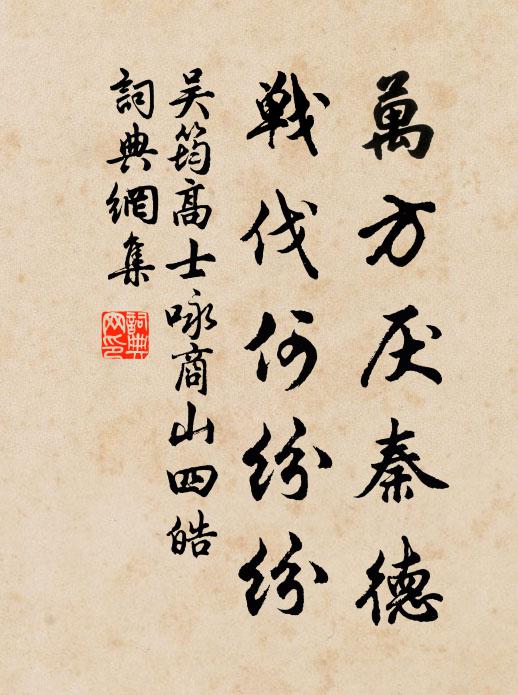 萬方厌秦德
戦伐何纷纷
吴筠高士咏商山四皓
詞典網集
詞典网印